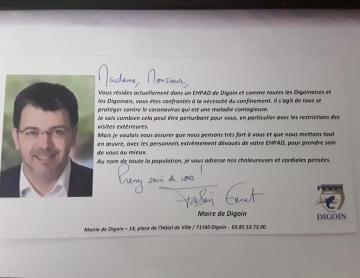 Madame, Monsieur,
Vous résidez actuellement dans un EHPAD de Digoin et comme toutes les Digoinaises et
les Digoinais, vous êtes confrontés à la nécessité du confinement. Il s'agit de tous se
protéger contre le coronavirus qui est une maladie contagieuse.
Je sais combien cela peut être perturbant pour vous, en particulier avec les restrictions des
visites extérieures.
Mais je voulais vous assurer que nous pensons très fort à vous et que nous mettons tout
en œuvre, avec les personnels extrêmement dévoués de votre EHPAD, pour prendre soin
de vous au mieux.
Au nom de toute la population, je vous adresse nos chaleureuses et cordiales pensées.
Prenez soin de vous !
Maire de Digoin
DIGOIN
Mairie de Digoin – 14, place de l'Hôtel de Ville / 71160 Digoin - 03.85.53.73.00